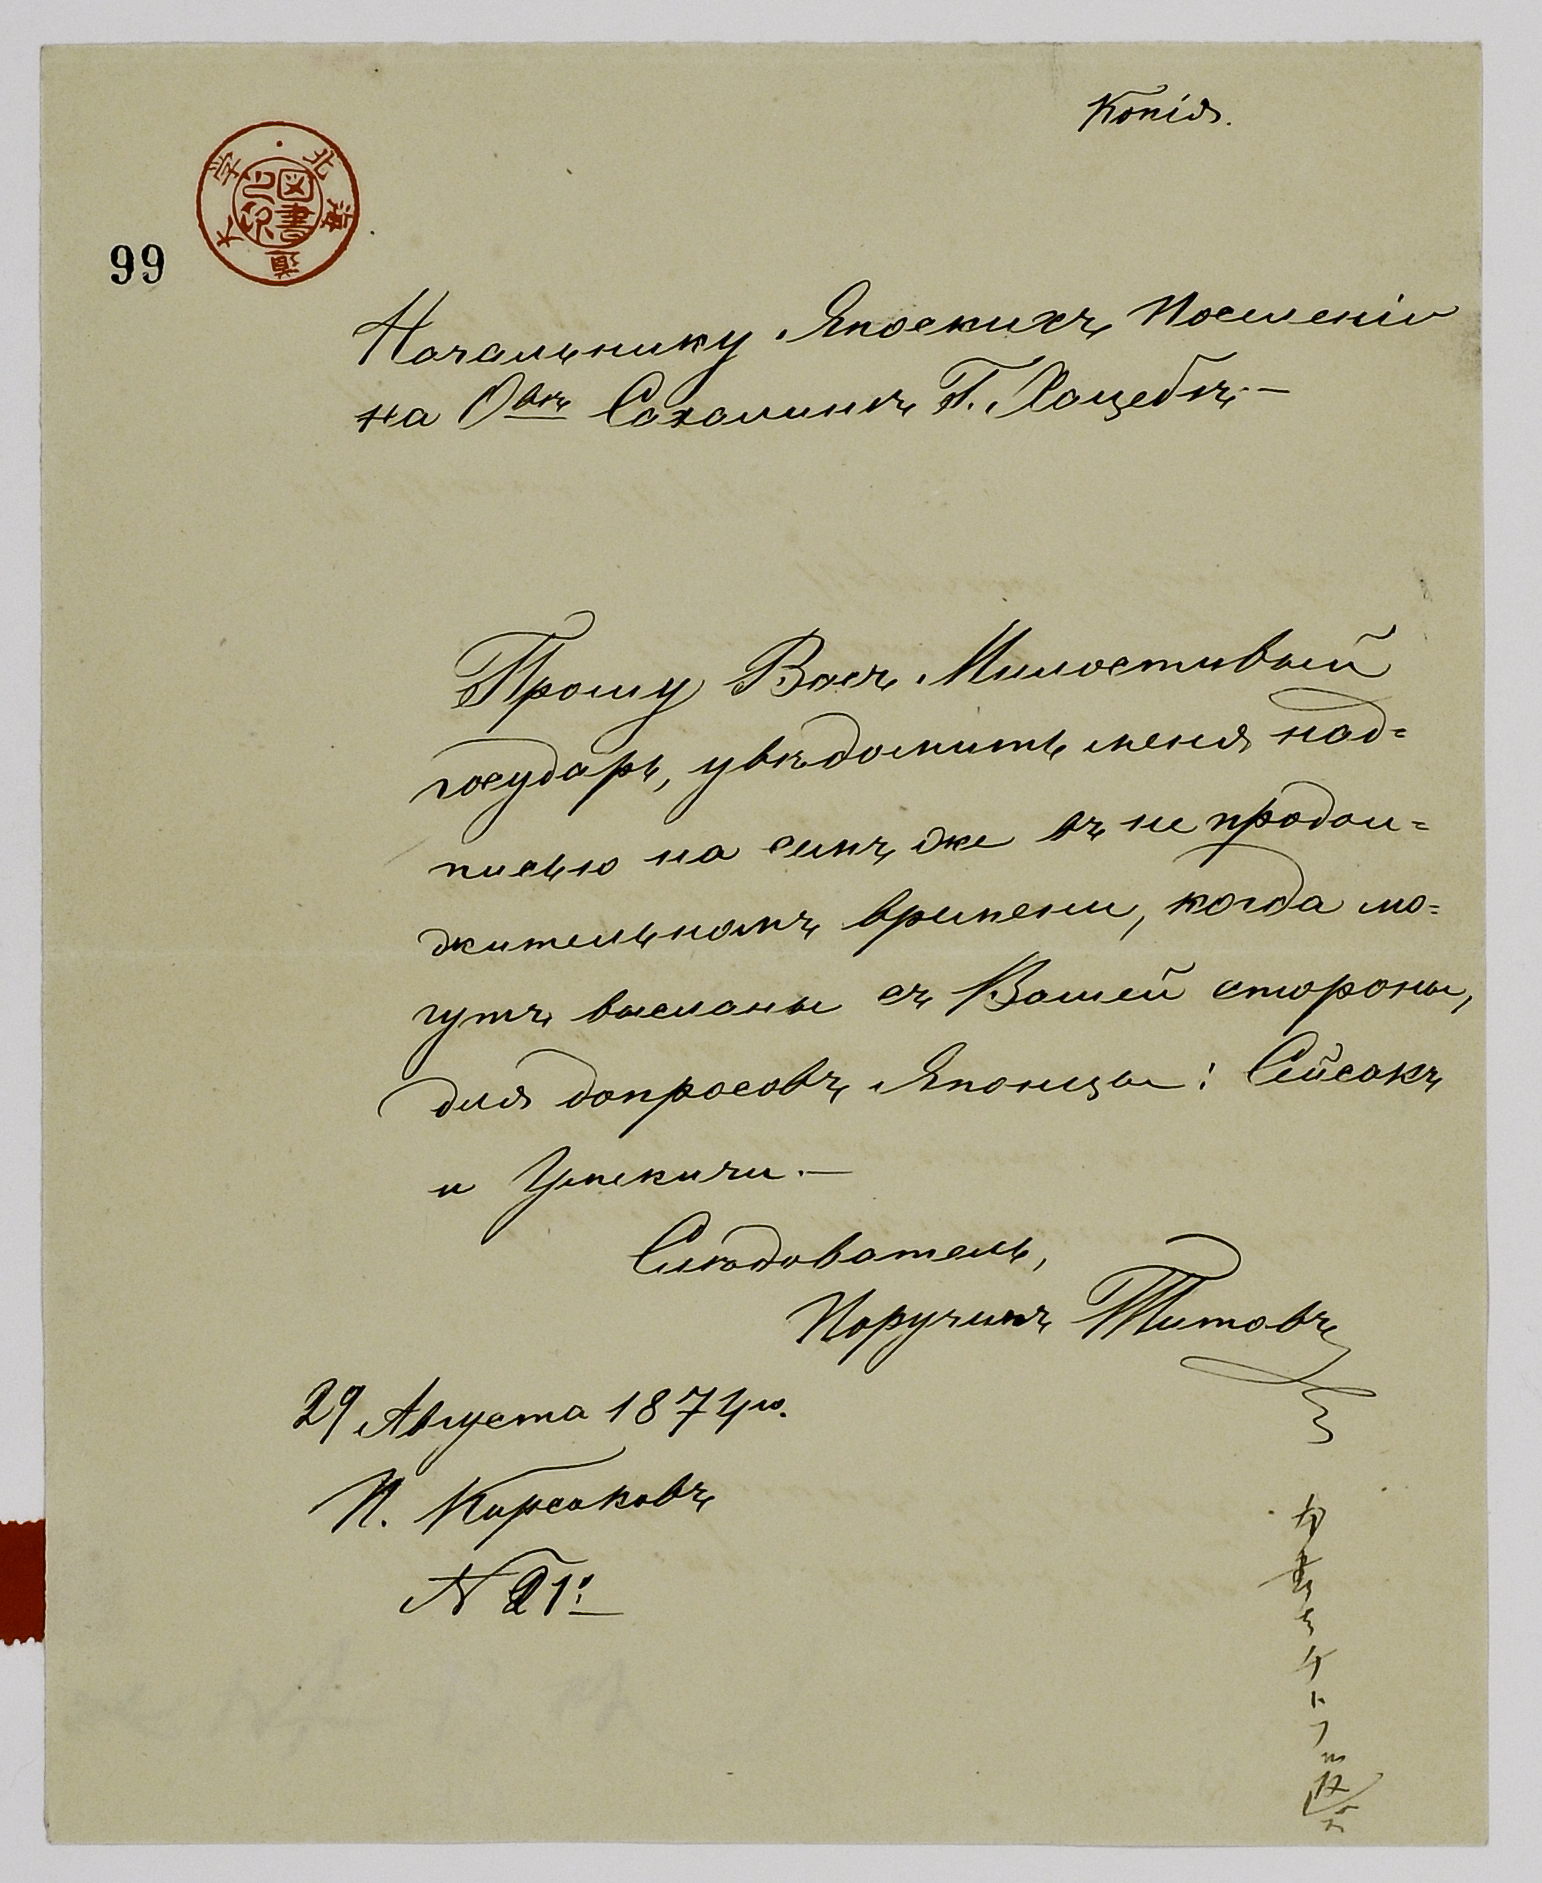 Копія.
北海道大学
図書之印
99
Начальнику Японскихъ Поселеній
на О-вѣ Сахалинѣ Г. Хацебъ.—
Прошу Васъ Милостивый
государь, увѣдомить меня над=
писью на семъ же въ не продол=
жительномъ времени, когда мо=
гутъ высланы съ Вашей стороны,
для допросовъ Японцы: Сейсакъ
и Умекичи.—
Слѣдователь,
Поручикъ Титовъ
29 Августа 1874 г.
П. Корсаковъ
N 21.